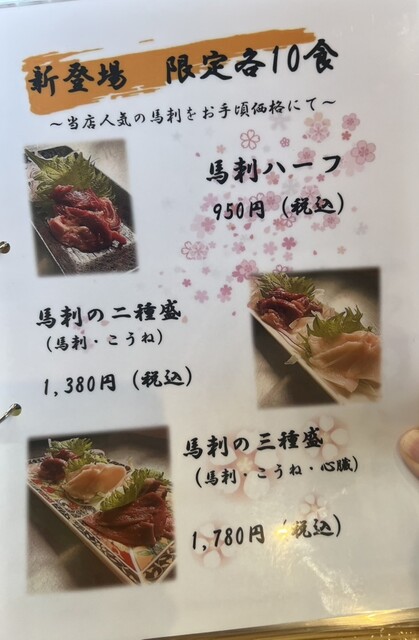 新登場　限定各10食
～当店人気の馬刺をお手頃価格にて～
馬刺ハーフ
950円（税込）
馬刺の二種盛
（馬刺・こうね）
1,380円（税込）
馬刺の三種盛
（馬刺・こうね・心臓）
1,780円（税込）